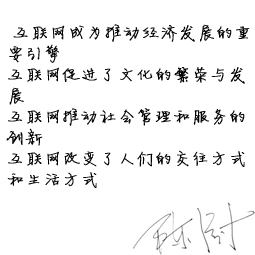 互联网成为推动经济发展的重
要引擎
互联网促进了文化的繁荣与发
展
互联网推动社会管理和服务的
创新
互联网改变了人们的交往方式
和生活方式